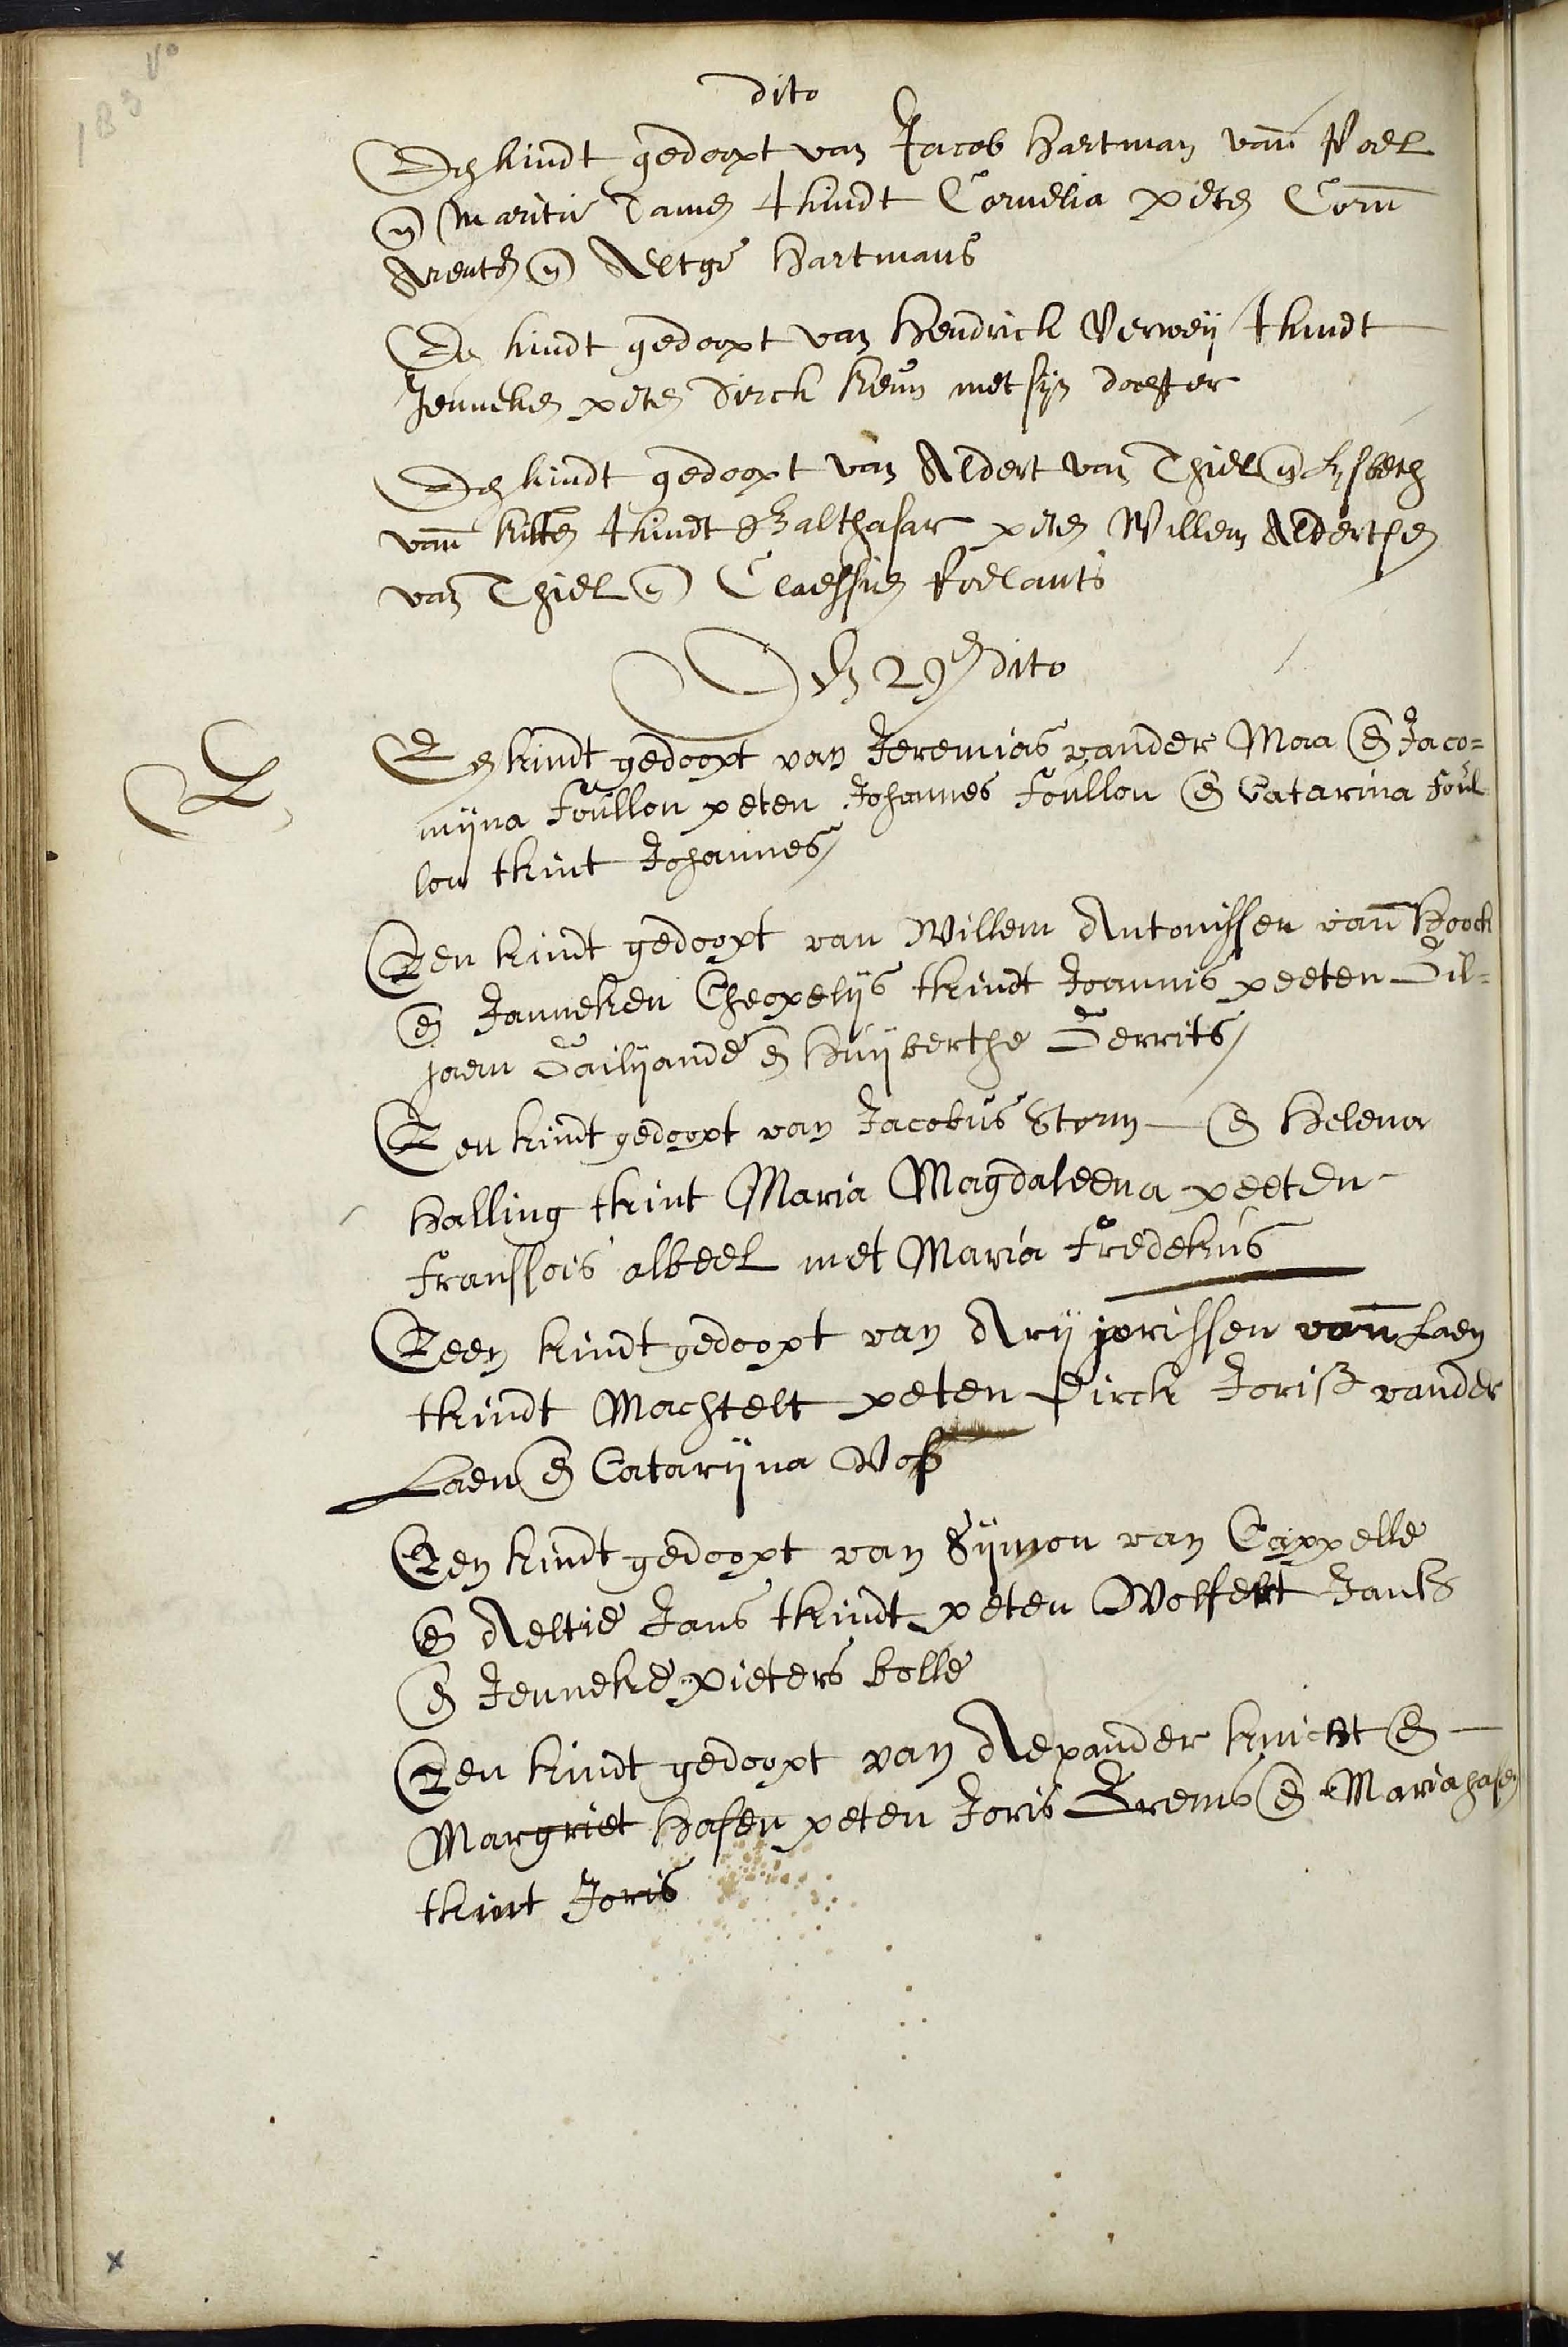 183 vo
dito
Een kindt gedoopt van Jacob Hartman vand Poel
en maritie Dames tkindt Cornelia peten Corn
Arents en Aeltge Hartmans
Een kindt gedoopt van Hendrick Verweij tkindt
Jenneken peten Dirck keun met sijn dochter
Een kindt gedoopt van Aldert van Thiel en Lijsbeth
van tkindt Balthasar peten Willem Aldertsen
van Thiel en Claessien Roelants
Den 29en dito
Een kindt gedoopt van Jeremias vander Maa en Jaco=
mijna Foúllon peten Johannes Foúllon en Catarina Foúl
lon tkint Johannes
Een kindt gedoopt van Willem Antonissen van Hoock
en Janneken tkindt Joannis peeten Gil=
jaen Gailijande en Huijberthe Gerrits
Een kindt gedoopt van Jacobús Storm en Helena
Halling tkint Maria Magdaleena peeten
Franssois albeel met Maria Fredekús
Eeen kindt gedoopt van Arij jorissen van Laen
tkindt Machtelt peten Dirck Joriss vander
Laen en Catarijna Vos
Een kindt gedoopt van Sijmon van Cappelle
en Aeltie Jans tkindt peten Wolfert Jans
en Jenneke pieters bolle
Een kindt gedoopt van Alexander knicht en
Margriet Hasen peten Joris Grems en Maria hasen
tkint Joris
x